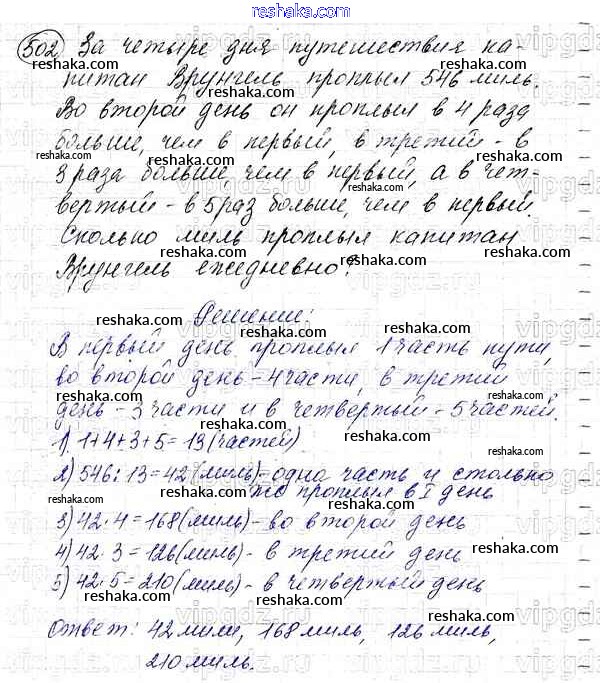 reshaka.com
502 За четыре дня путешествия ка-
питан Врунгель проплыл 546 миль.
Во второй день он проплыл в 4 раза
больше, чем в первый, в третий - в
3 раза больше, чем в первый, а в чет-
вертый - в 5 раз больше, чем в первый.
Сколько миль проплыл капитан
Врунгель ежедневно?
Решение:
В первый день проплыл 1 часть пути,
во второй день - 4 части, в третий
день - 3 части и в четвертый - 5 частей.
1) 1+4+3+5=13 (частей)
2) 546:13=42 (миль) - одна часть и столько
же проплыл в I день
3) 42·4=168 (миль) - во второй день
4) 42·3=126 (миль) - в третий день
5) 42·5=210 (миль) - в четвертый день
Ответ: 42 мили, 168 миль, 126 миль,
210 миль.